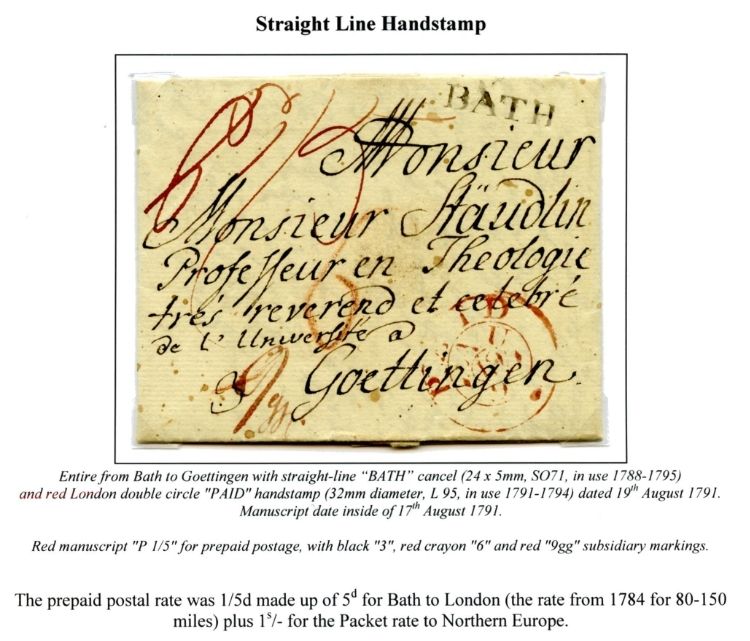 Straight Line Handstamp
BATH
Monsieur
Monsieur Stäudlin
Professeur en Theologie
trés reverend et celebré
de l' Université a
a Goettingen.
Entire from Bath to Goettingen with straight-line “BATH” cancel (24 x 5mm, SO71, in use 1788-1795)
and red London double circle "PAID" handstamp (32mm diameter, L 95, in use 1791-1794) dated 19th August 1791.
Manuscript date inside of 17th August 1791.
Red manuscript "P 1/5" for prepaid postage, with black "3", red crayon "6" and red "9gg" subsidiary markings.
The prepaid postal rate was 1/5d made up of 5d for Bath to London (the rate from 1784 for 80-150
miles) plus 1s/- for the Packet rate to Northern Europe.